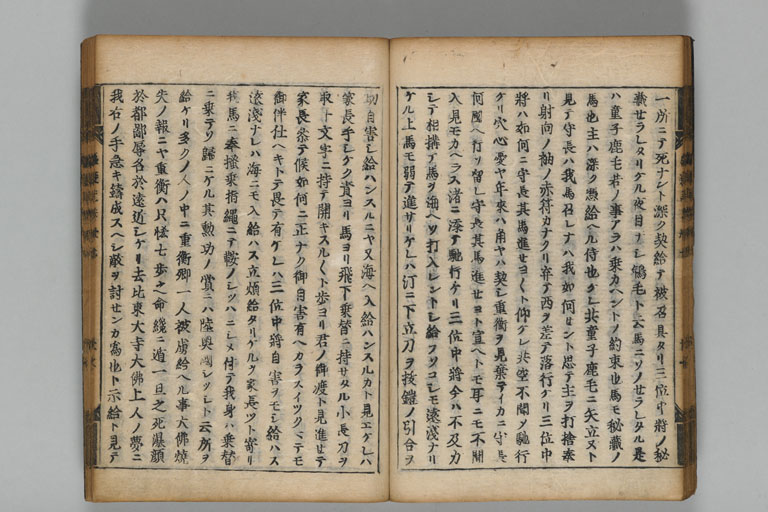 一所ニテ死ナント深ク契給テ被召具タリ三位中將ノ秘
載セラレタリケル夜目ナシ鴾毛ト云馬ニソノセラレタル是
ハ童子鹿毛若ノ事アラハ乗カヘントノ約束也馬モ秘藏ノ
馬也主ハ深ク憑給ヘル侍也ケレ共童子鹿毛ニ矢立スト
見テ守長ハ我馬召レナハ我如何セント思テ主ヲ打捨奉
リ射向ノ袖ノ赤符カナクリ弃テ西ヲ差テ落行ケリ三位中
將ハ如何ニ守長其馬進セヨヽト仰ケレ共空不聞ソ馳行
ケリ穴心憂ヤ年来ハ角ヤハ契シ重衡ヲ見棄テイカニ守長
何國ヘ行ソ留レ守長其馬進セヨト宣ヘトモ耳ニモ不聞
入見モカヘラス渚ニ添テ馳行ケリ三位中將今ハ不及力
シテ相構テ馬ヲ海ヘソ打入レントシ給フソコシモ遠淺ナリ
ケル上馬モ弱テ進サリケレハ汀ニ下立刀ヲ拔鎧ノ引合ヲ
切自害シ給ハンスルニヤ又海ヘ入給ハンスルカト見エケレハ
家長手シケク責ヨリ馬ヨリ飛下乗替ニ持セタル小長刀ヲ
取十文字ニ持テ開キスルヽト歩ヨリ君ノ御渡ト見進セテ
家長参テ候如何ニ正ナク御自害有ヘカラスイツクマテモ
御伴仕ヘキトテ畏テ有ケレハ三位中將自害ヲモシ給ハス
遠淺ナレハ海ニモ入給ハス立煩給タリケルヲ家長ツト寄リ
我馬ニ奉掻乗指繩ニテ鞍ノシツハニシメ付テ我身ハ乗替
ニ乗テソ歸ニケル其勲功ノ賞ニハ陸奥國シソト云所ヲ
給ケリ多クノ人ノ中ニ重衡卿一人被虜給ヘル事大佛燒
失ノ報ニヤ重衡ハ只怪七歩之命纔ニ遁一旦之死曝顔
於都鄙辱名於遠近シケリ去比東大寺大佛上人ノ夢ニ
我右ノ手急キ鑄成スヘシ敵ヲ討センカ爲也ト示給ト見テ